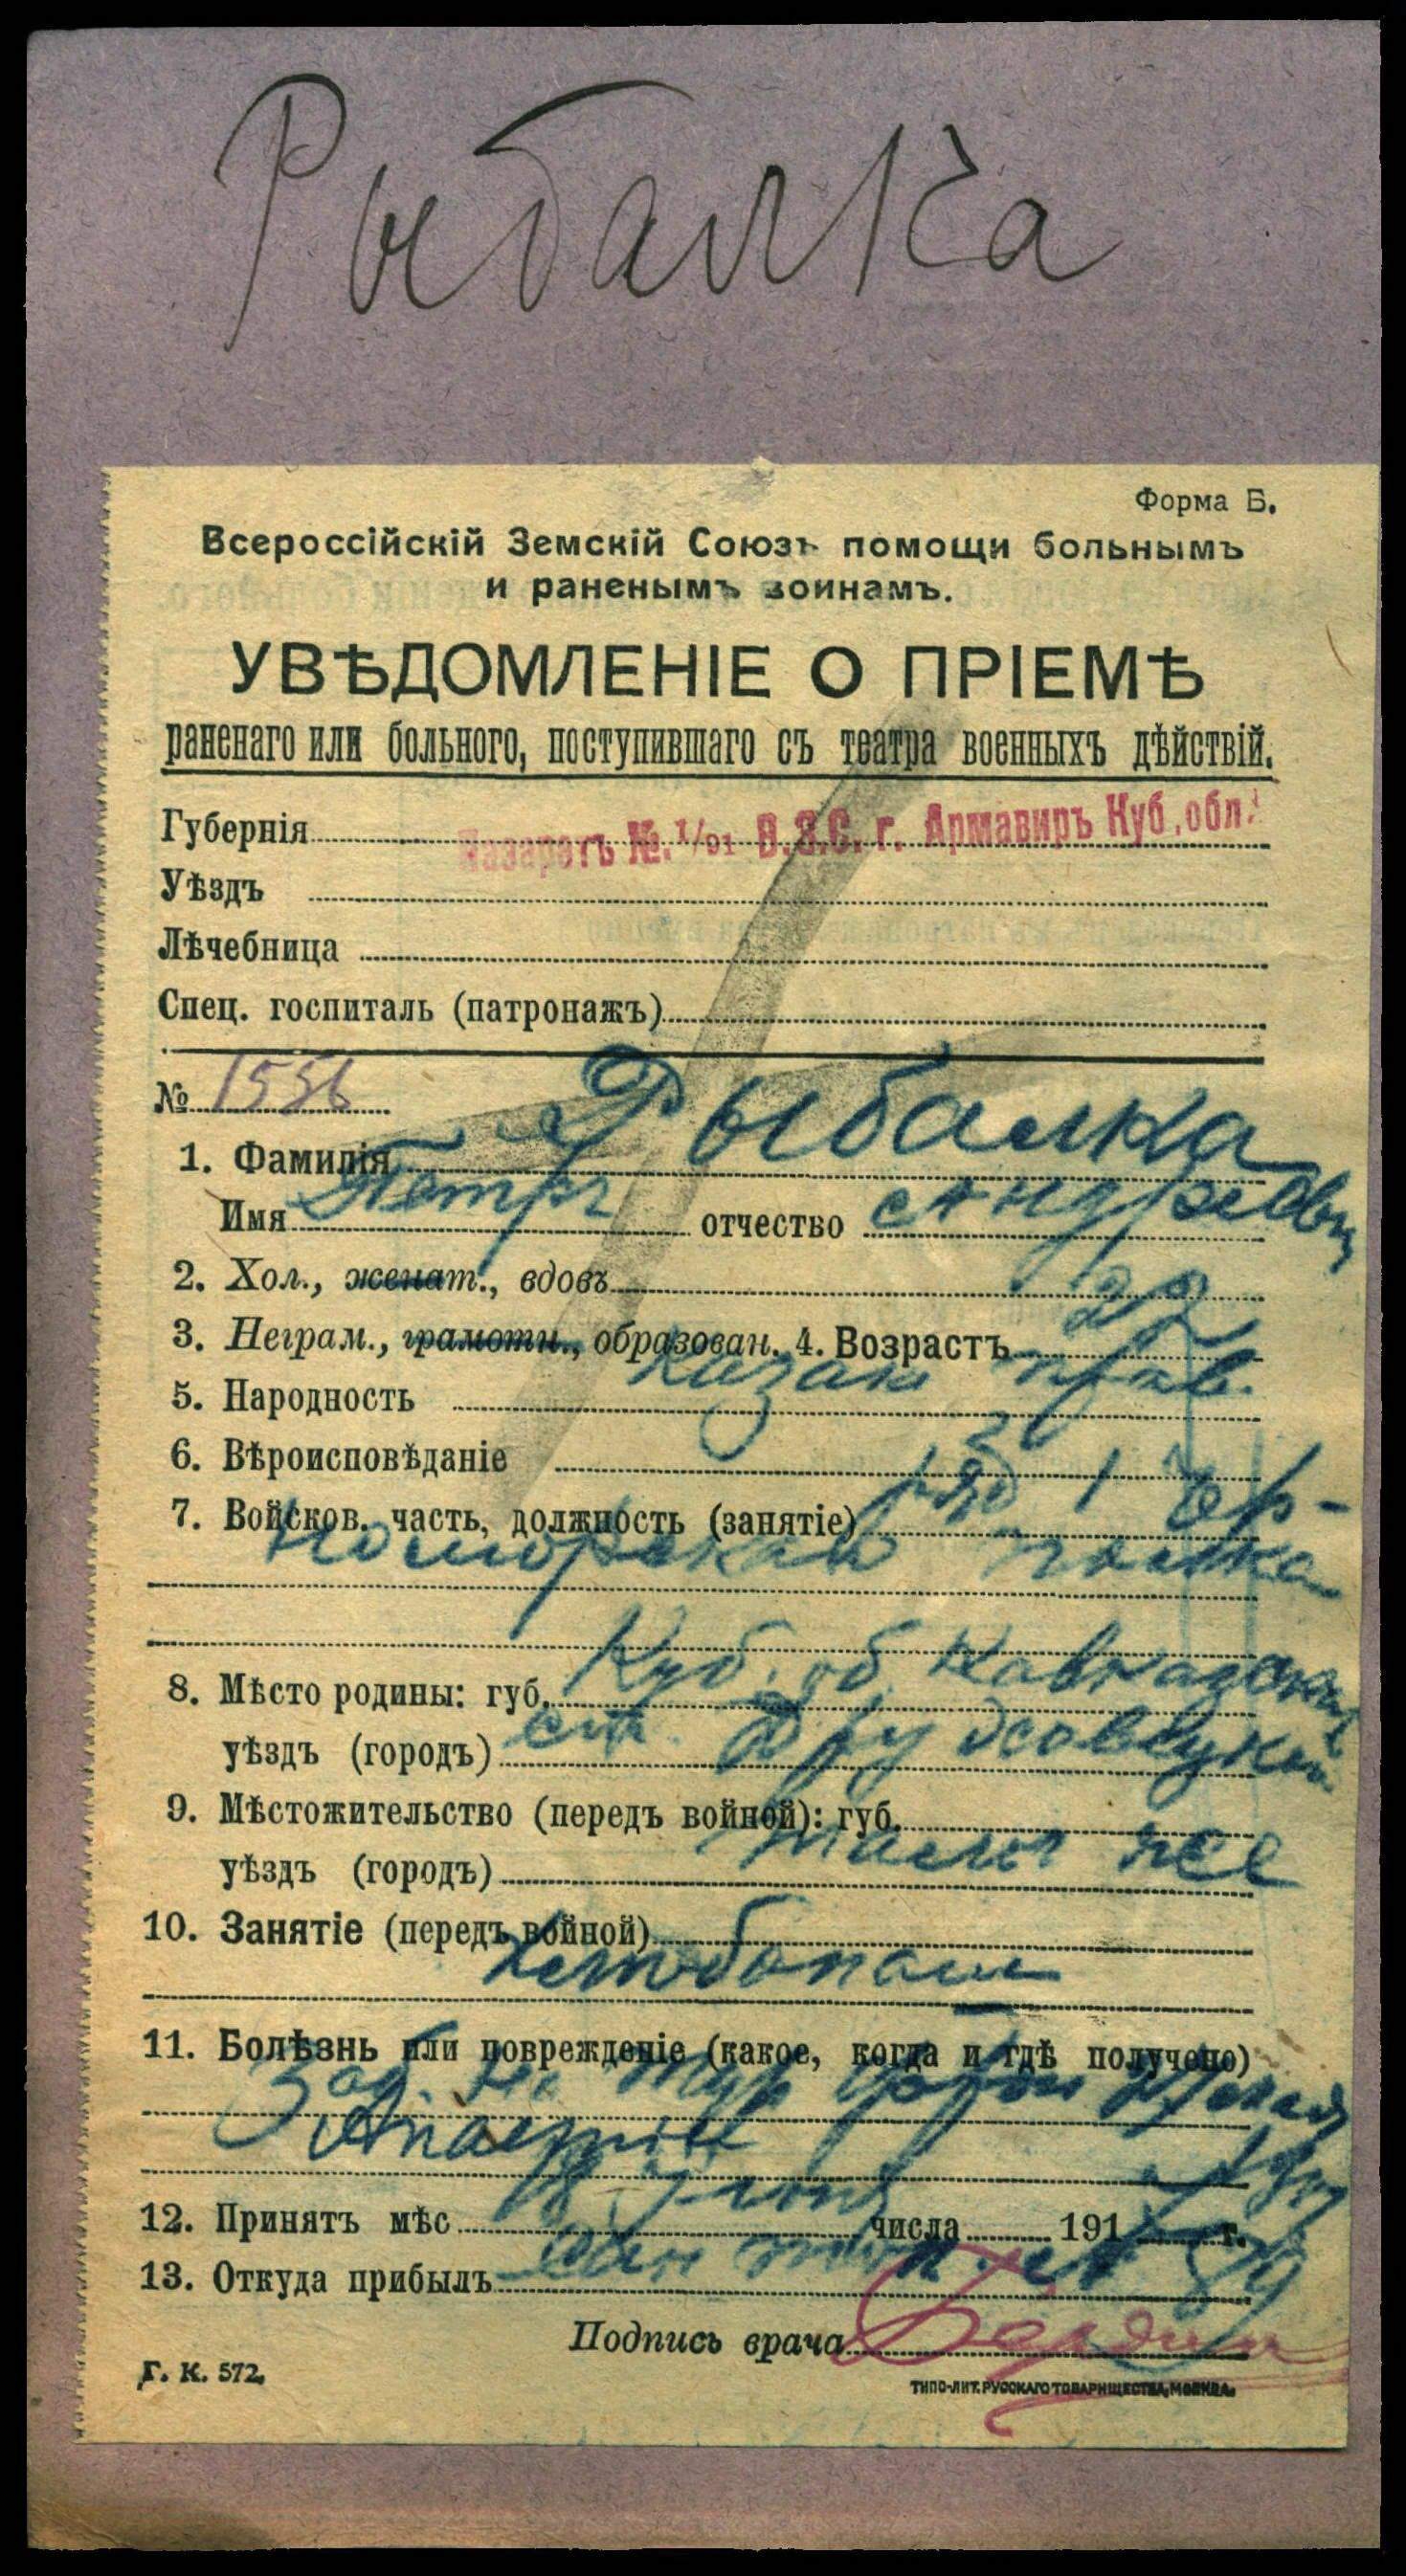 Рыбалка
Форма Б.
Всероссійскій Земскій Союзъ помощи больнымъ
и раненымъ воинамъ.
УВѢДОМЛЕНІЕ О ПРІЕМѢ
раненаго или больного, поступившаго съ театра военныхъ дѣйствій.
Губернія Лазаретъ №. 1/91 В.З.С. г. Армавиръ Куб. обл.
Уѣздъ
Лѣчебница
Спец. госпиталь (патронажъ)
№ 1536
1. Фамилія Рыбалка
Имя Петръ отчество Андреевич
2. Хол., женат., вдовъ
3. Неграм., грамотн., образован. 4. Возрастъ
5. Народность казак прав.
6. Вѣроисповѣданіе
7. Войсков. часть, должность (занятіе) ряд 1 Чер-
номорскаго полка
8. Мѣсто родины: губ. Куб. об. Кавказскій
уѣздъ (городъ) ст.
9. Мѣстожительство (передъ войной): губ.
уѣздъ (городъ) тамъ же
10. Занятіе (передъ войной)
хлебопаш
11. Болѣзнь или поврежденіе (какое, когда и гдѣ получено)
12. Принятъ мѣс 18 числа 191 г.
13. Откуда прибылъ
Подпись врача
Г. К. 572.
ТИПО-ЛИТ. РУССКАГО ТОВАРИЩЕСТВА, МОСКВА.